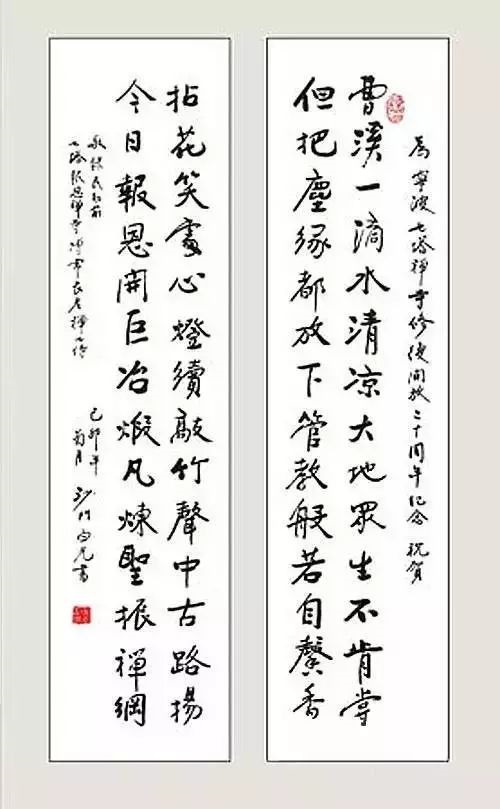 為寧波七塔禪寺修復開放二十周年紀念 祝賀
曹溪一滴水清凉大地眾生不肯嘗
但把塵緣都放下管教般若自馨香
拈花笑處心燈續敲竹聲中古路揚
今日報恩開巨冶煅凡煉聖振禪綱
敬錄民初前
七塔報恩禪寺溥常長老禪
己卯年
菊月 沙門 書